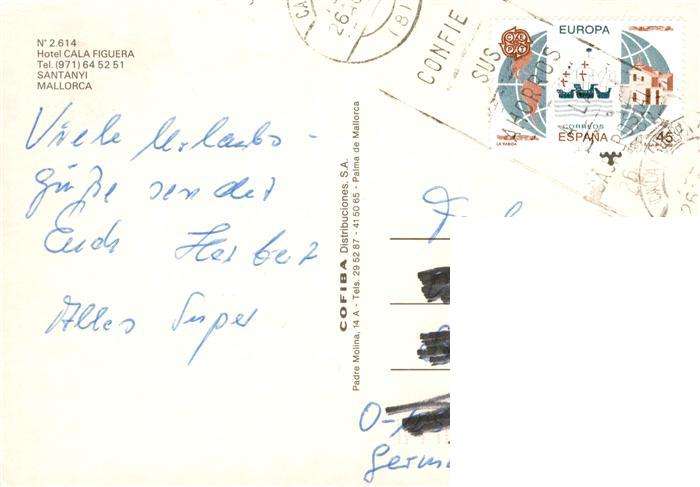 N° 2.614
Hotel CALA FIGUERA
Tel. (971) 64 52 51
SANTANYI
MALLORCA
Viele Urlaubs-
grüße sendet
Euch Herbert
Alles Super
COFIBA Distribuciones, S.A.
Padre Molina, 14 A - Tels. 29 52 87 - 41 50 65 - Palma de Mallorca
CONFIE
SUS
EUROPA
CORREOS
ESPAÑA
45
LA RABIDA
Germ